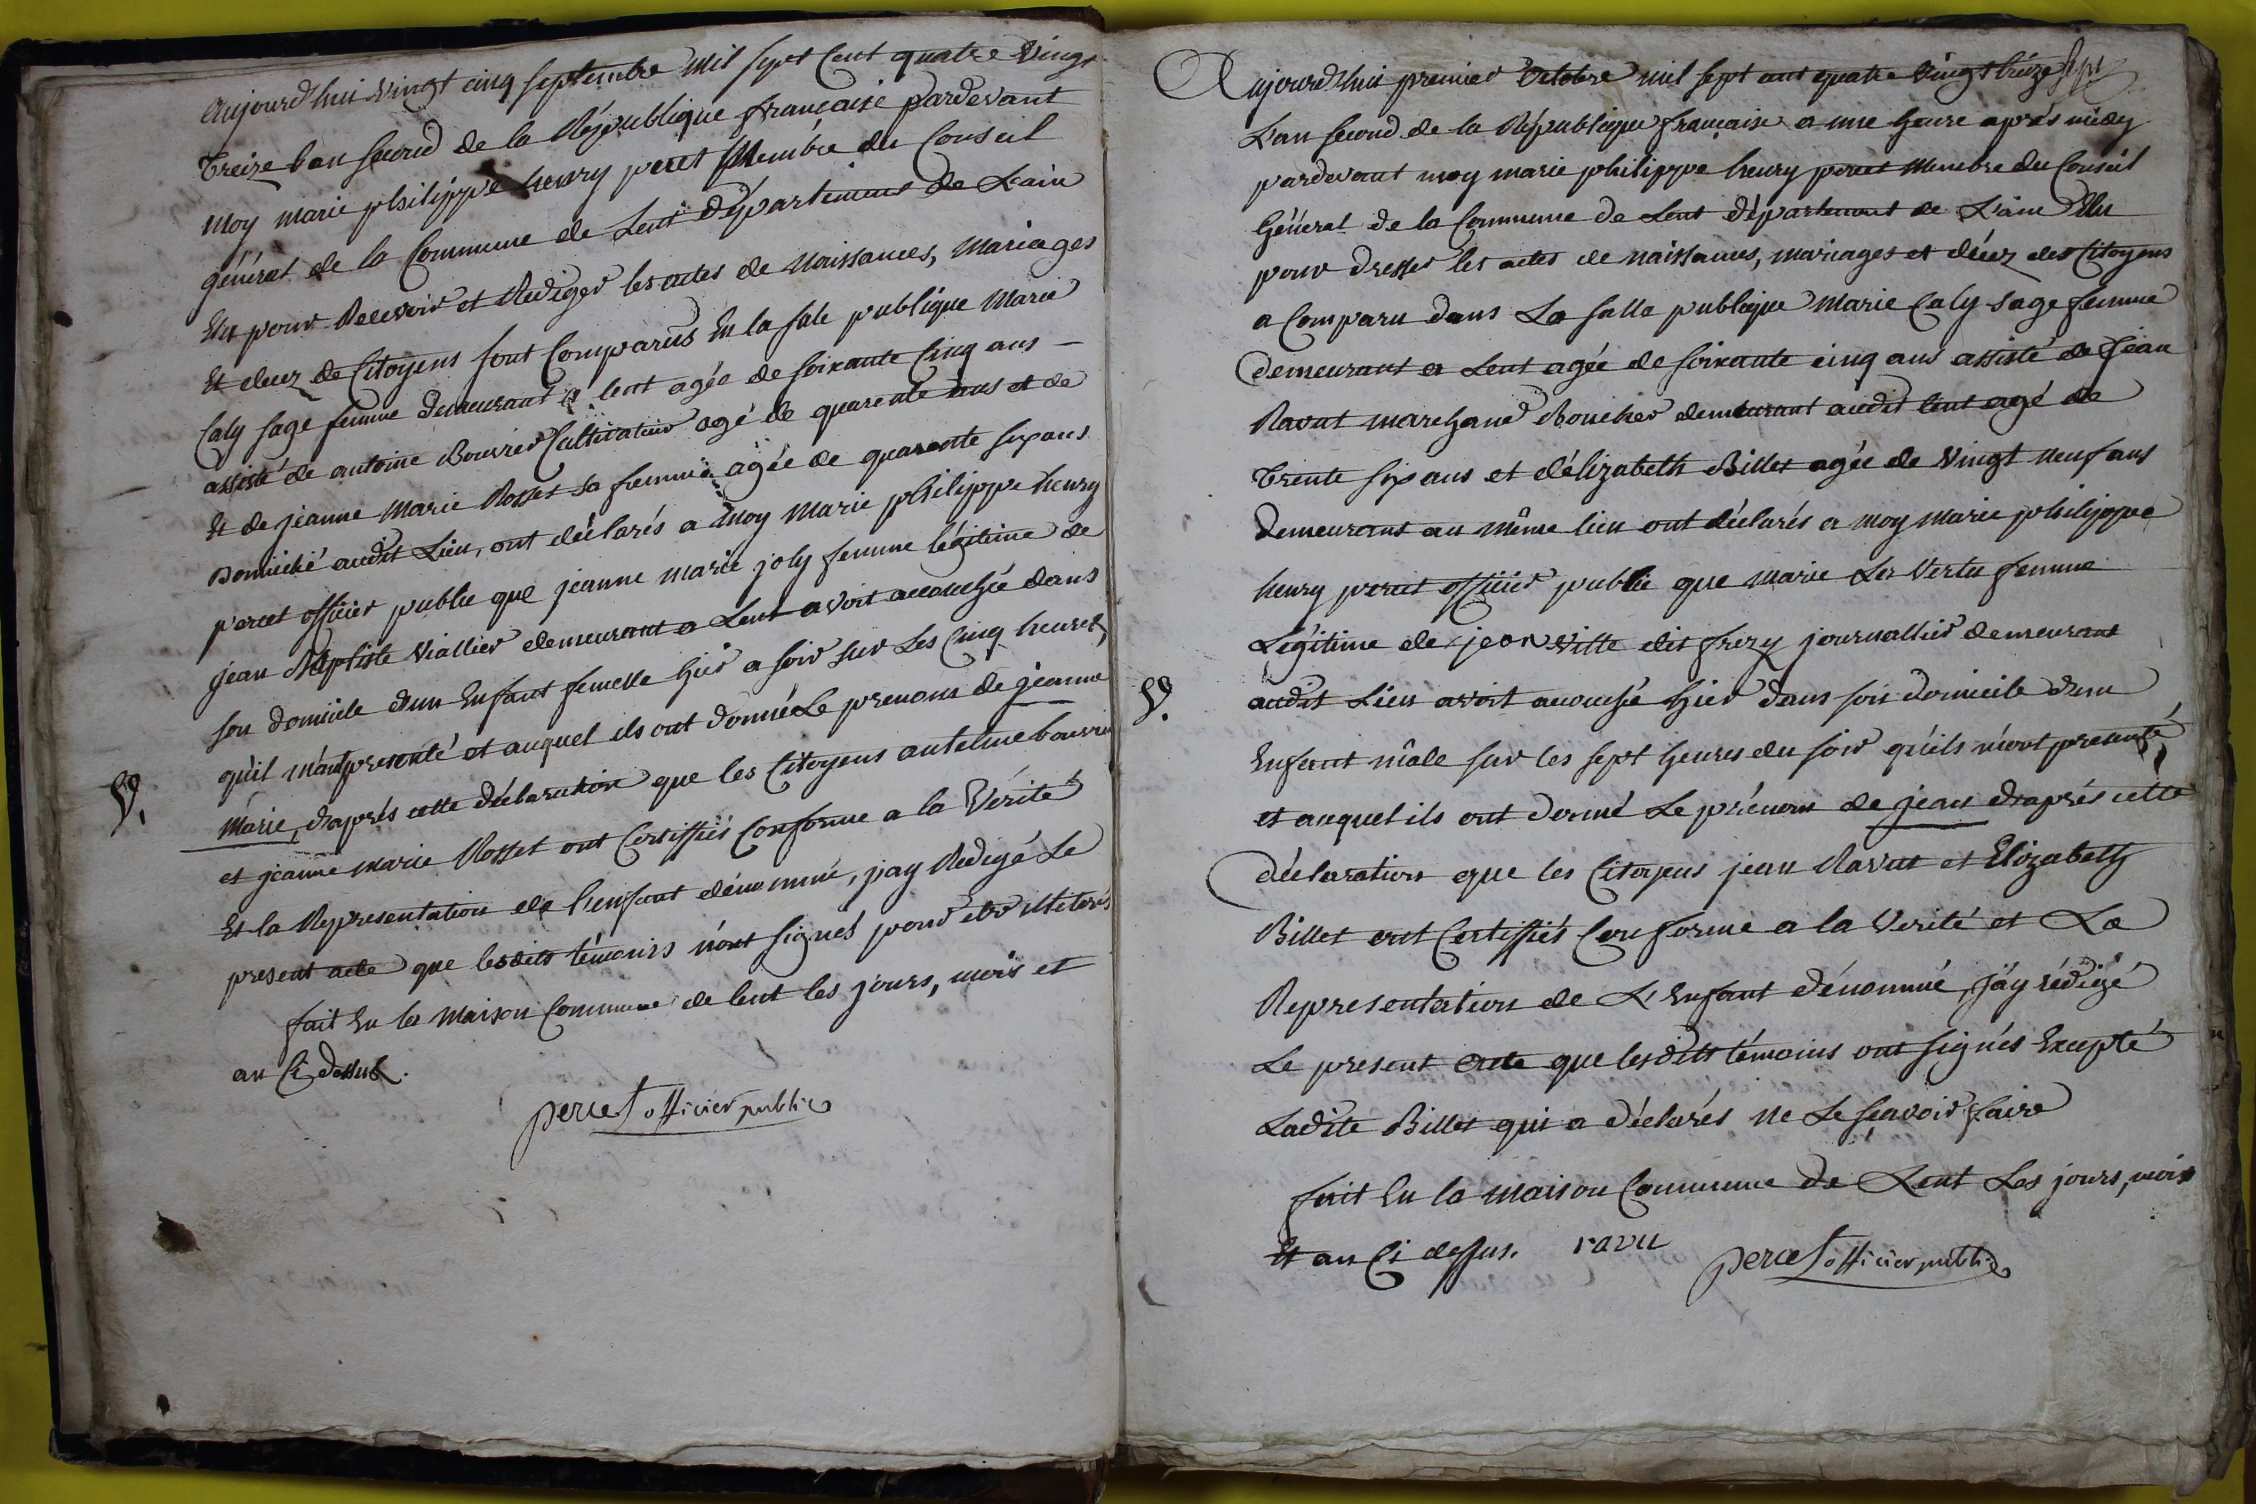 Aujourd'hui vingt cinq septembre mil sept Cent quatre vingt
treize l'an second de la République française pardevant
moy marie philippe henry perret Membre du Conseil
général de la Commune de Lent département de L'ain
Elu pour Recevoir et Rediger les actes de Naissances, Mariages
Et decez de Citoyens sont Comparus En la sale publique Marie
Caly sage femme demeurant a lent agée de soixante Cinq ans —
assisté de antoine Bouvier Cultivateur agé de quarente ans et de
Et de jeanne Marie Rosset sa femme agée de quarente six ans
Domicilié audit Lieu, ont déclarés a Moy Marie philippe henry
percet officier public que jeanne marie joly femme légitime de
jean Baptiste Viallier demeurant a Lent avoit accouchée dans
son domicile d'un Enfant femelle hier a soir sur Les Cinq heures,
qu'il m'ont presenté et auquel ils ont donné Le prenom de jeanne
Marie, d'aprés cette déclaration que les Citoyens antelme bouvier
et jeanne marie Rosset ont Certiffiés Conforme a la Vérité
Et la Representation de l'enfant dénommé, j'ay Redigé Le
present acte que lesdits témoins n'ont signés pour etre illeterés
fait En la Maison Commune de lent les jours, mois et
an Ci dessus.
percet officier public
V.
Aujourd'huis premier Octobre mil sept cent quatre vingt treize
L'an second de la République française a une heure aprés midy
pardevant moy marie philippe henry percet Membre du Conseil
Général de la Commune de Lent département de L'ain Elu
pour dresser les actes de naissances, mariages et décez des Citoyens
a Comparu dans La salle publique Marie Caly sage femme
demeurant a Lent agée de soixante cinq ans assisté de Jean
Ravut marchand Boucher demeurant audit lent agé de
trente six ans et d'élizabeth Billet agée de vingt neuf ans
demeurant au même lieu ont déclarés a moy Marie philippe
henry percet officier public que marie La Vertu femme
Légitime de jean Vitte dit frezy journallier demeurant
audit Lieu avoit acouché hier dans son domicile d'un
Enfant mâle sur les sept heures du soir qu'ils m'ont presenté
et auquel ils ont donné Le prénom de jean d'aprés cette
déclaration que les Citoyens jean Ravut et Elizabeth
Billet ont Certiffiés Conforme a la Verité et La
Representation de L'Enfant dénommé, j'ay rédigé
Le present acte que lesdits témoins ont signés Excepté
Ladite Billet qui a déclarés ne Le sçavoir faire
fait En la Maison Commune de Lent Les jours, mois
Et an Ci dessus. ravu
percet officier public
V.